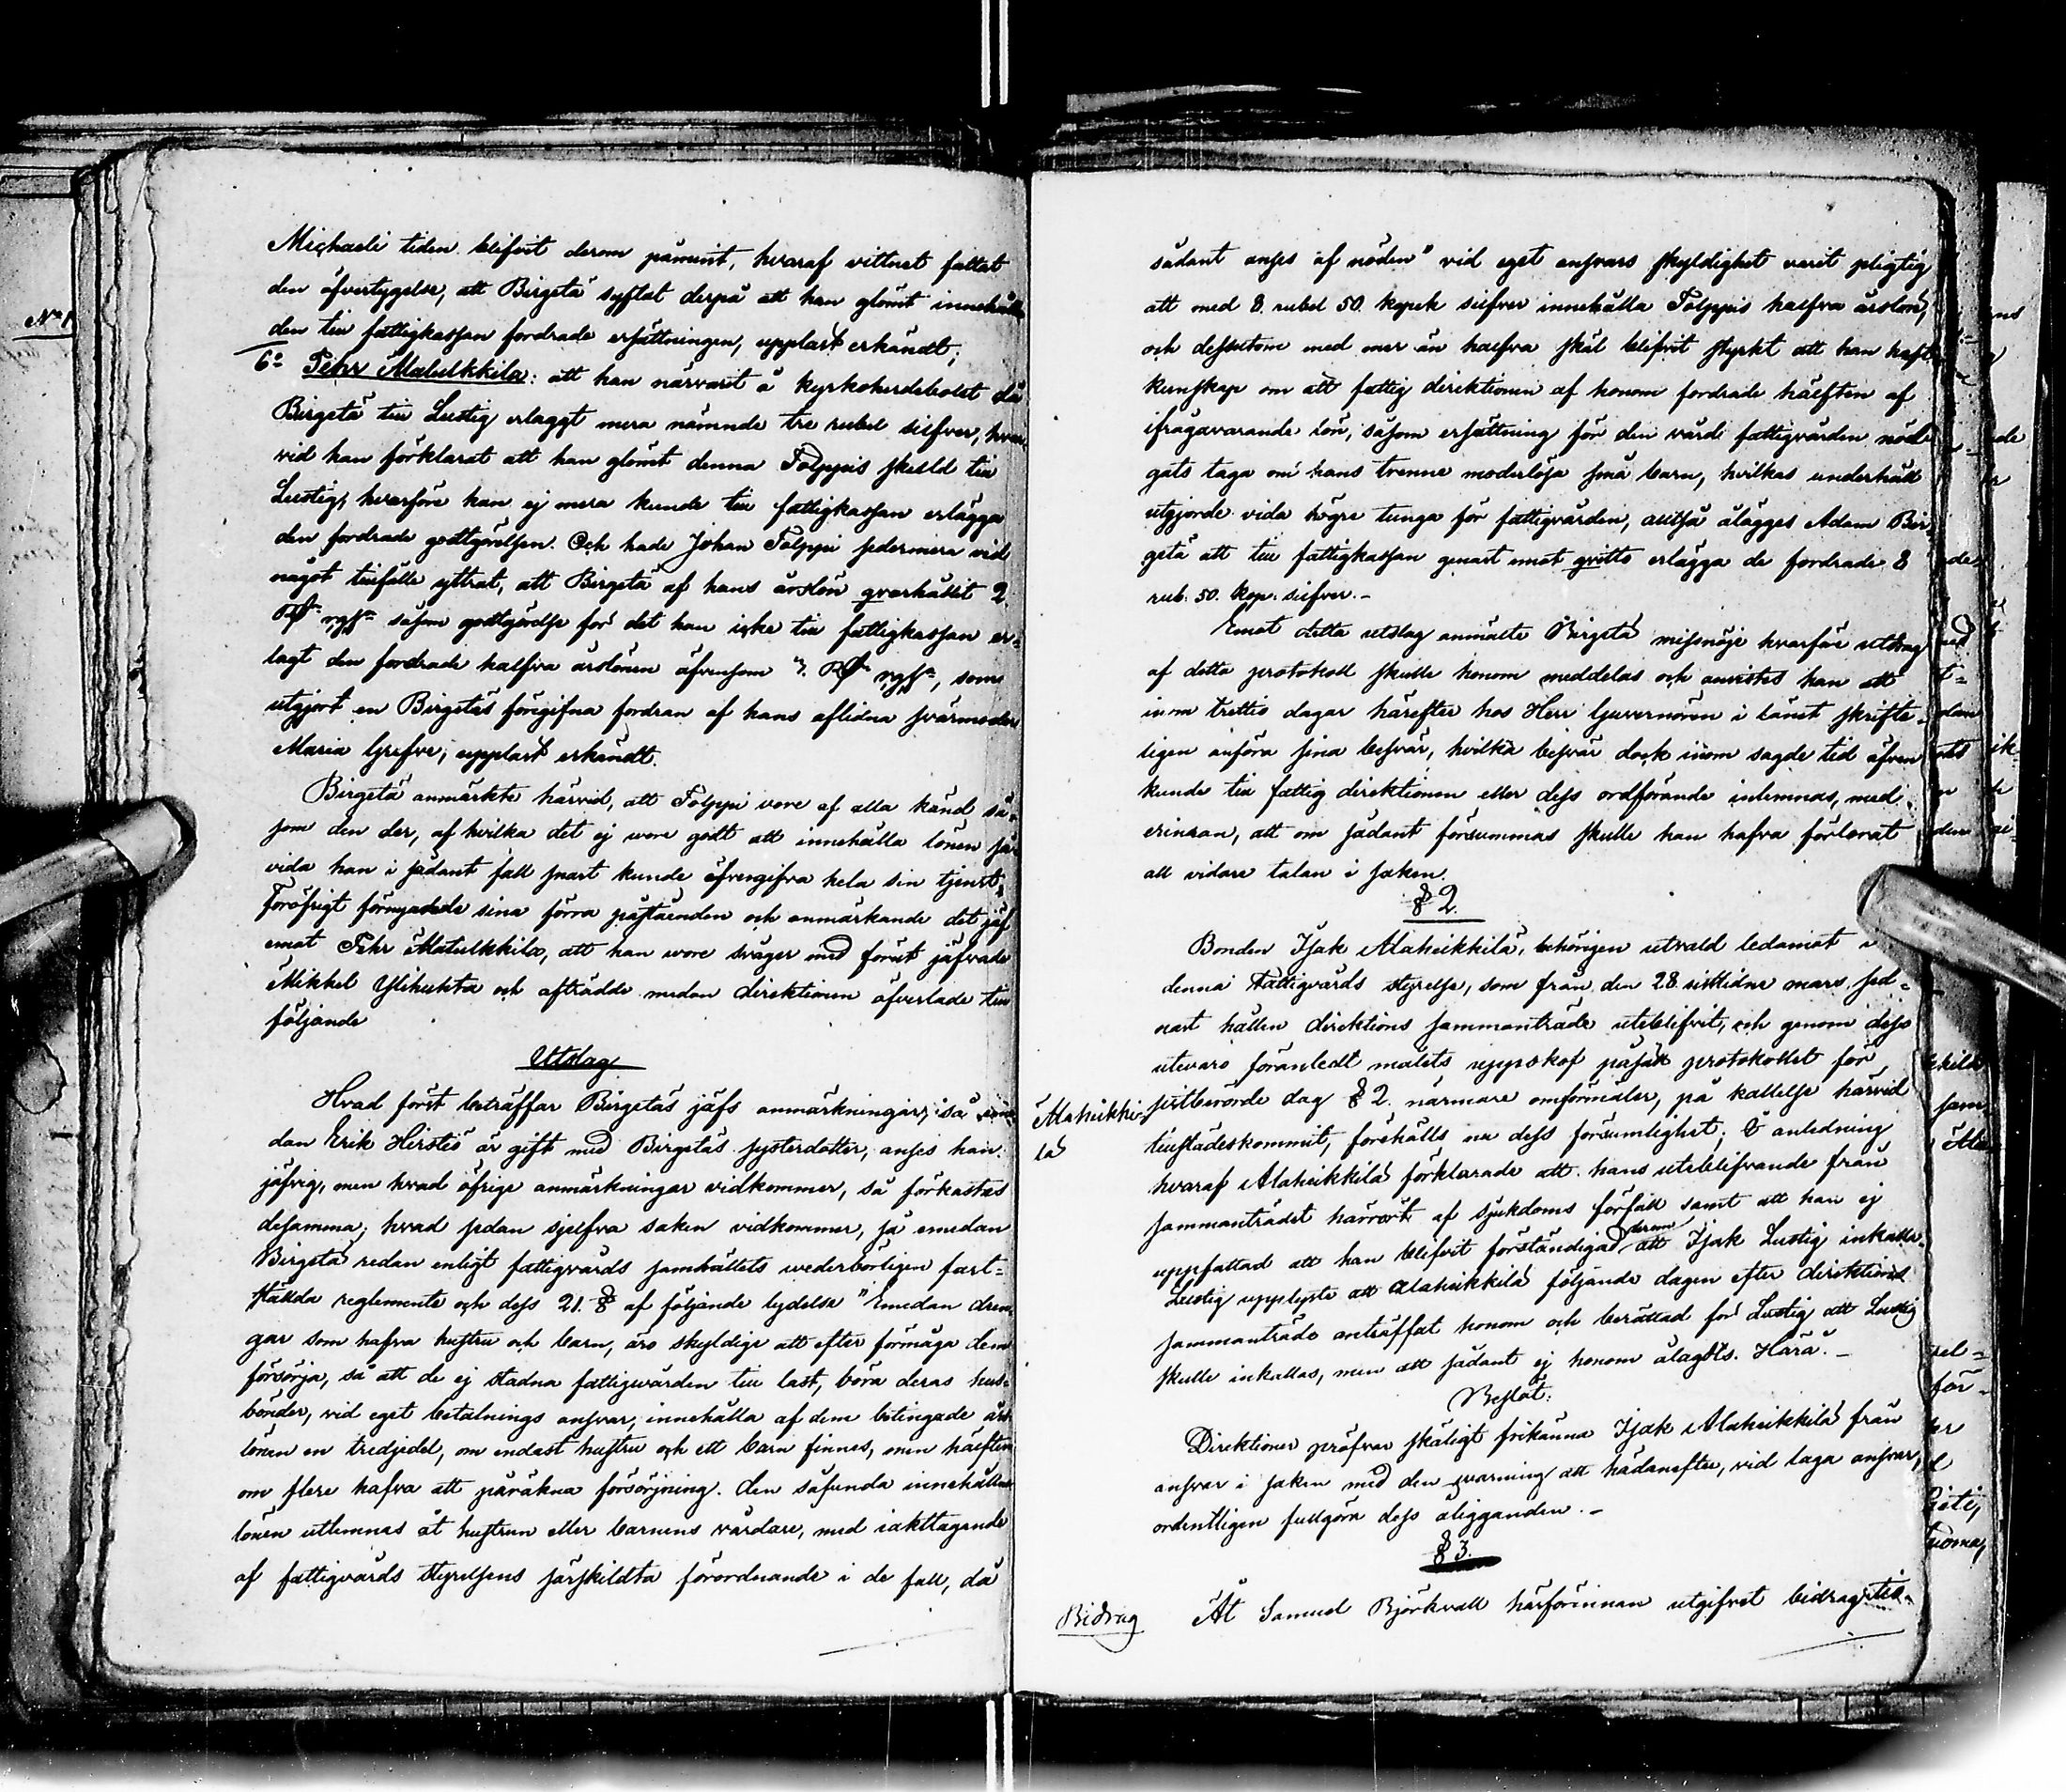 Michaeli tiden blifvit derom påmint, hvaraf vittnet fattat
den öfvertygelse, att Birgetä syftat derpå att han glömt innehålla
den till fattigkassan fordrade ersättningen, uppläst erkändt;
6o Pehr Matulkkila: att han närvarit å kyrkoherdebolet då
Birgetä till Lustig erlaggt mera nämnde tre rubel silfver, hvar-
vid han förklarat att han glömt denna Tolppis skuld till
Lustig, hvarföre han ej mera kunde till fattigkassan erlägga
den fordrade godtgörelsen. Och hade Johan Tolppi sedermera vid
något tillfälle yttrat, att Birgetä af hans årslön qvarhållit 2
Rr rgss såsom godtgörelse för det han icke till fattigkassan er-
lagt den fordrade halfva årslönen äfvensom 3. Rr rgss, som
utgjort en Birgetäs föregifna fordran af hans aflidna svärmoder
Maria Grefve; uppläst erkändt.
Birgetä anmärkte härvid, att Tolppi vore af alla känd så-
som den der, af hvilka det ej vore godt att innehålla lönen så
vida han i sådant fall snart kunde öfvergifva hela sin tjenst,
Föröfrigt förnyadede sina förra påståenden och anmärkande det jäf
emot Pehr Matulkkila, att han vore svåger med förut jäfvade
Mikkel Ylihukka och afträdde medan direktionen öfverlade till
följande
Utslag
Hvad först beträffar Birgetäs jäfs anmärkningar, så eme-
dan Erik Hirsto är gift med Birgetäs systerdotter, anses han
jäfvig, men hvad öfrige anmärkningar vidkommer, så förkastas
desamma; hvad sedan sjelfva saken vidkommer, så emedan
Birgetä redan enligt fattigvårds samhällets wederbörligen fast-
stälda reglemente och dess 21. § af följande lydelse "Emedan dren-
gar som hafva hustru och barn, äro skyldige att efter förmåga dem
försörja, så att de ej stadna fattigwården till last, böra deras hus-
bönder, vid eget betalnings ansvar, innehålla af dem betingade års
lönen en tredjedel, om endast hustru och ett barn finnes, men hälften
om flere hafva att påräkna försörjning. Den sålunda innehållna
lönen utlemnas åt hustrun eller barnens vårdare, med iakttagande
af fattigvårds styrelsens särskildta förordnande i de fall, då
sådant anses af nöden" vid eget ansvars skyldighet varit pligtig
att med 8. rubel 50. kopek silfver innehålla Tolppis halfva årslön,
och dessutom med mer än halfva skäl blifvit styrkt att han haft
kunskap om att fattig direktionen af honom fordrade hälften af
ifrågavarande lön, såsom ersättning för den vård fattigvården nöd-
gats taga om hans trenne moderlösa små barn, hvilkas underhåll
utgjorde vida högre tunga för fattigvården, alltså ålägges Adam Bir-
getä att till fattigkassan genast emot qvitto erlägga de fordrade 8
rub. 50. kop. silfver.-
Emot detta utslag anmälte Birgetä missnöje hvarföre utdrag
af detta protokoll skulle honom meddelas och anvistes han att
inom trettio dagar härefter hos Herr Guvernören i länet skrifte-
ligen anföra sina besvär, hvilka besvär dock inom sagde tid äfven
kunde till fattig direktionen eller dess ordförande inlemnas, med
erinran, att om sådant försummas skulle han hafva förlorat
all vidare talan i saken.
§ 2.
Bonden Isak Alaheikkilä, behörigen utvald ledamot i
denna Fattigvårds styrelse, som från den 28 sistlidne mars sed-
nast hållen direktions sammanträde uteblifvit, och genom dess
utevaro föranledt målets uppskof påsätt protokollet för
sistberörde dag § 2. närmare omförmäler, på kallelse härvid
Alaheikki-
lä
tillstädeskommit, förehålls nu dess försumlighet; I anledning
hvaraf Alaheikkilä förklarade att hans uteblifvande från
sammanträdet härrört af sjukdoms förfall samt att han ej
uppfattad att han blifvit förständigad derom att Isak Lustig inkalla.
Lustig upplyste att Alaheikkilä följande dagen efter direktions
sammanträde anträffat honom och berättad för Lustig att Lustig
skulle inkallas, men att sådant ej honom ålagdts. Härå.-
Beslöt:
Direktionen pröfvar skäligt frikänna Isak Alaheikkilä från
ansvar i saken med den warning att hädanefter, vid laga ansvar,
ordentligen fullgöra dess åligganden.-
§ 3.
Bidrag
Åt Samuel Björkvall härförinnan utgifvet bidrag till-